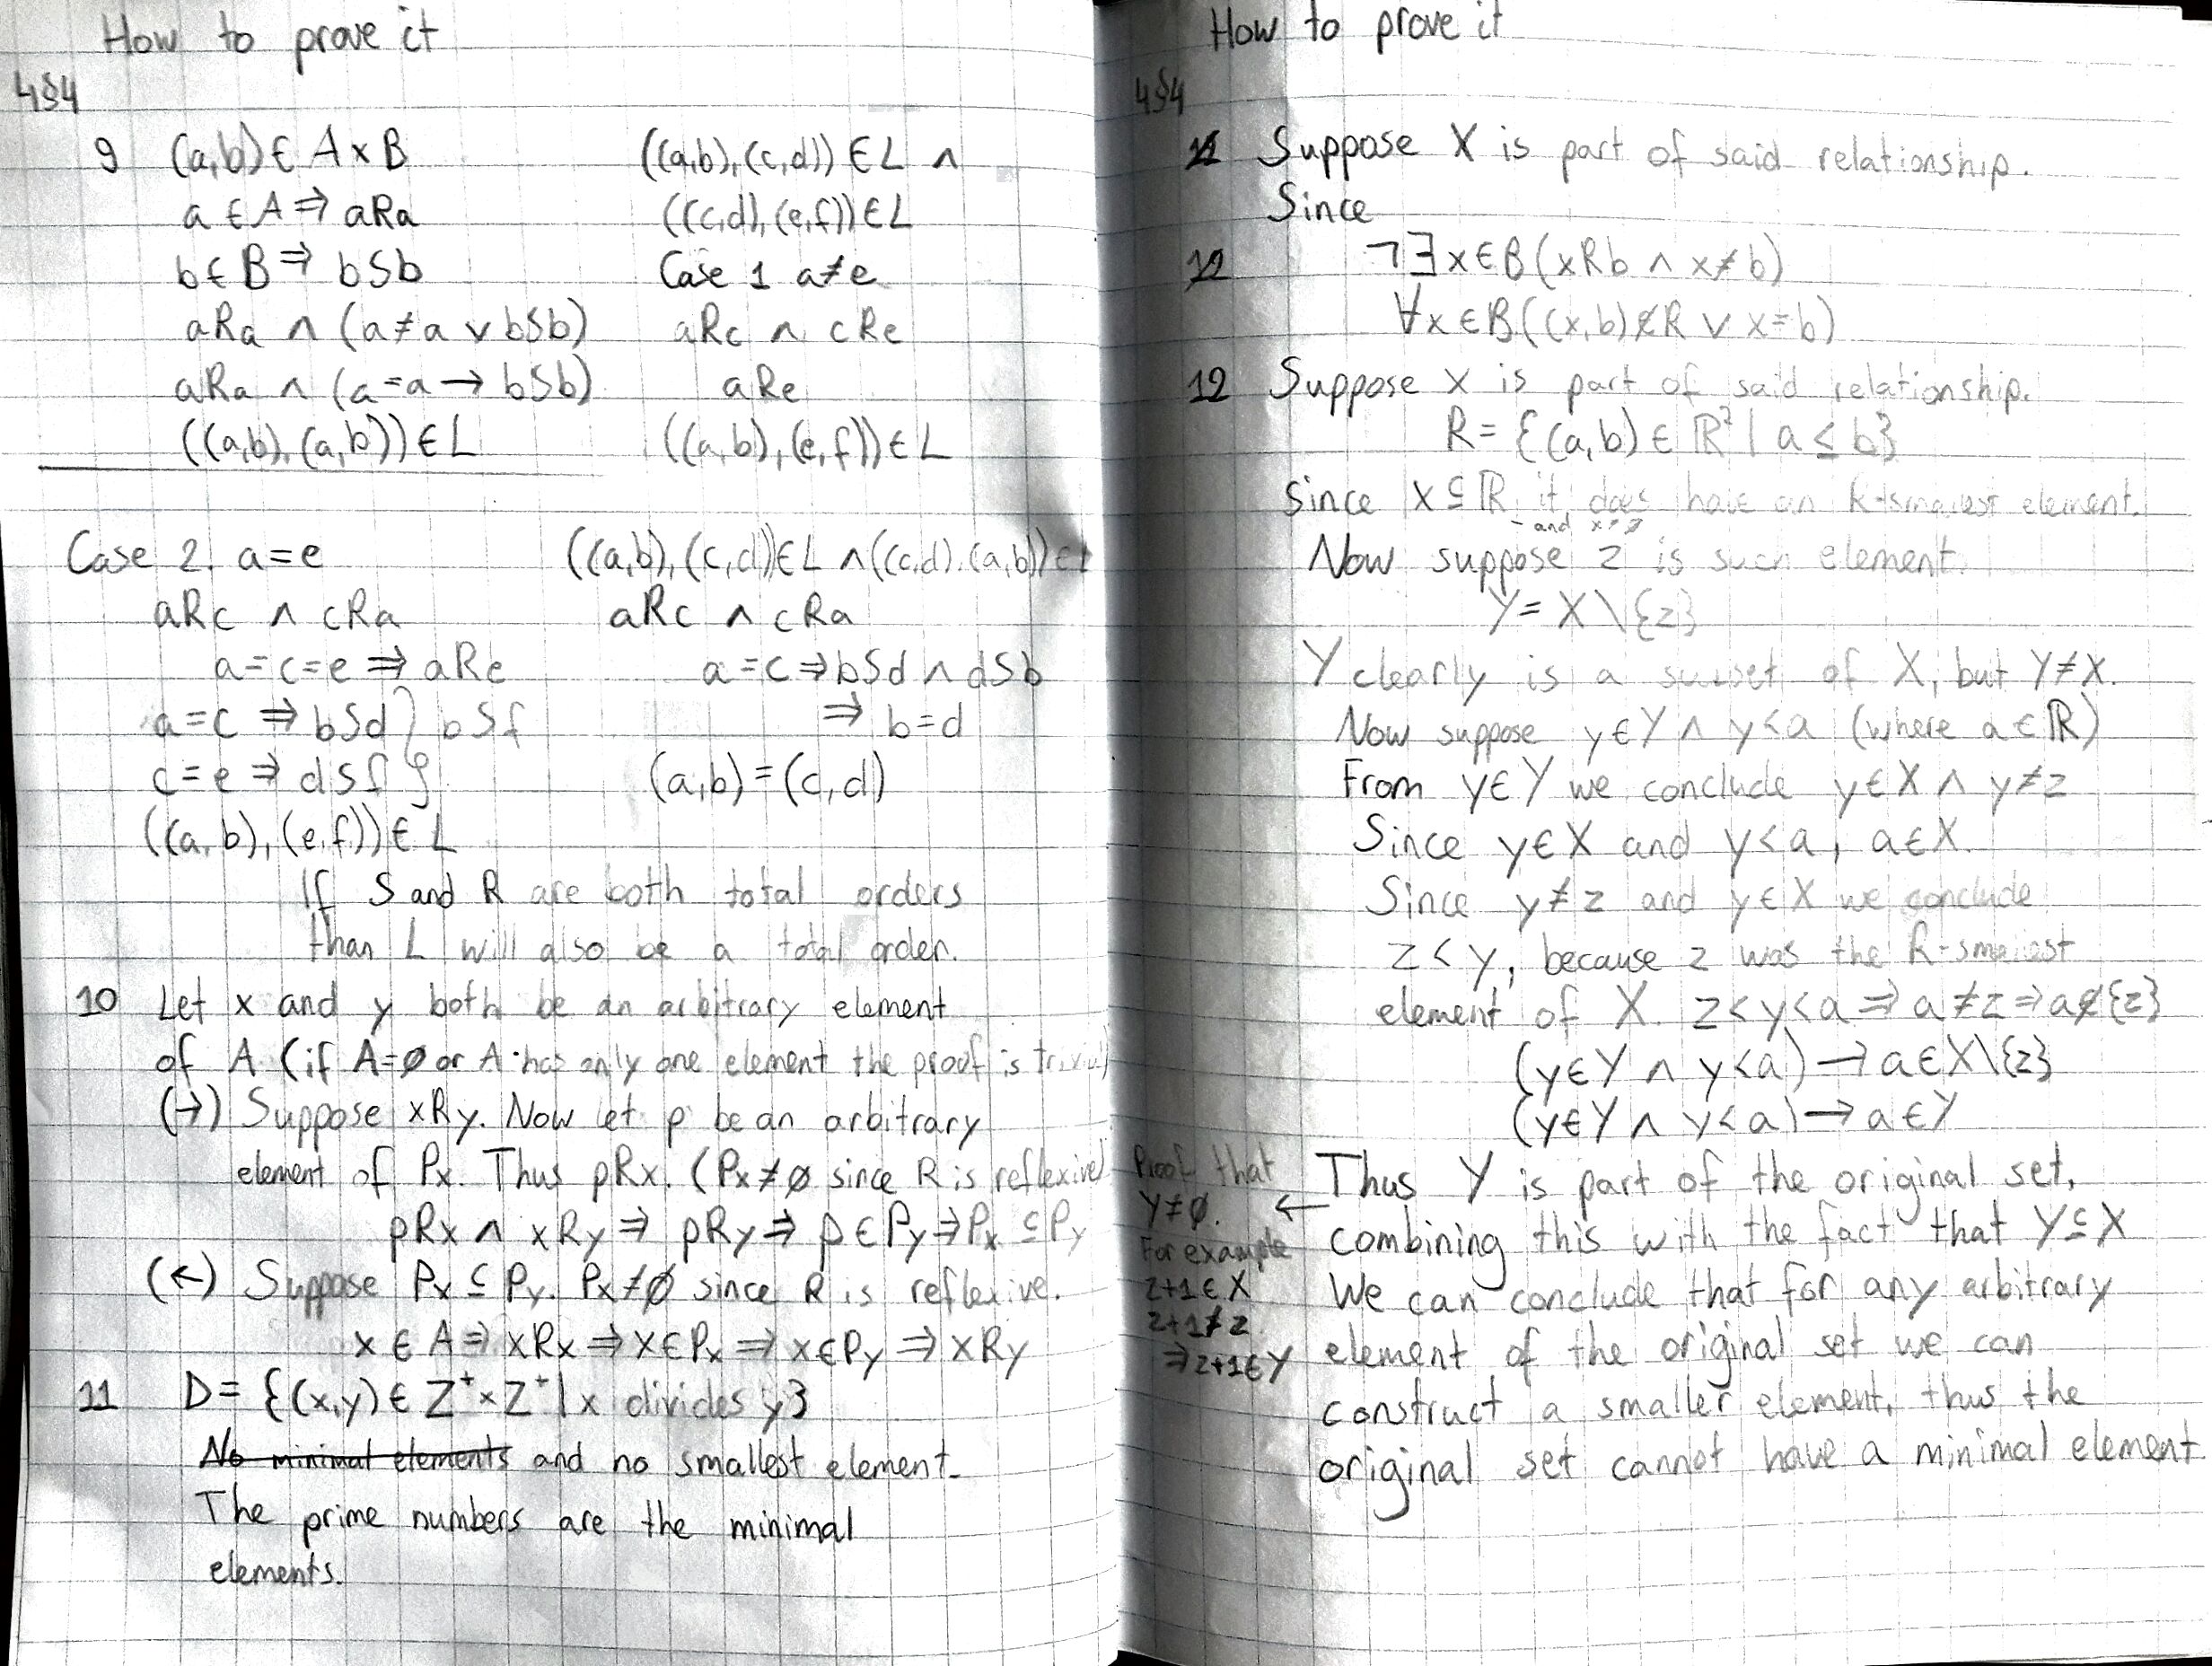 How to prove it
4§4
9 (a,b) ∈ A × B
a ∈ A ⇒ aRa
b ∈ B ⇒ bSb
aRa ∧ (a ≠ a ∨ bSb)
aRa ∧ (a = a → bSb)
((a,b),(a,b)) ∈ L
((a,b),(c,d)) ∈ L ∧
((c,d),(e,f)) ∈ L
Case 1 a ≠ e
aRc ∧ cRe
aRe
((a,b),(e,f)) ∈ L
Case 2. a = e
aRc ∧ cRa
a = c = e ⇒ aRe
a = c ⇒ bSd } bSf
c = e ⇒ dSf
((a,b),(e,f)) ∈ L
((a,b),(c,d)) ∈ L ∧ ((c,d),(a,b)) ∈ L
aRc ∧ cRa
a = c ⇒ bSd ∧ dSb
⇒ b = d
(a,b) = (c,d)
If S and R are both total orders
than L will also be a total order.
10 Let x and y both be an arbitrary element
of A. (if A = ∅ or A has only one element the proof is trivial)
(→) Suppose xRy. Now let p be an arbitrary
element of Px. Thus pRx. (Px ≠ ∅ since R is reflexive)
pRx ∧ xRy ⇒ pRy ⇒ p ∈ Py ⇒ Px ⊆ Py
(←) Suppose Px ⊆ Py. Px ≠ ∅ since R is reflexive.
x ∈ A ⇒ xRx ⇒ x ∈ Px ⇒ x ∈ Py ⇒ xRy
11 D = {(x,y) ∈ Z⁺ × Z⁺ | x divides y}
No minimal elements and no smallest element.
The prime numbers are the minimal
elements.
How to prove it
4§4
11 Suppose X is part of said relationship.
Since
12 ¬∃x ∈ B (xRb ∧ x ≠ b)
∀x ∈ B ((x,b) ∉ R ∨ x = b)
12 Suppose X is part of said relationship.
R = {(a,b) ∈ ℝ² | a ≤ b}
Since X ⊆ ℝ it does have an R-smallest element.
and X ≠ ∅
Now suppose z is such element.
Y = X \ {z}
Y clearly is a subset of X, but Y ≠ X.
Now suppose y ∈ Y ∧ y < a (where a ∈ ℝ)
From y ∈ Y we conclude y ∈ X ∧ y ≠ z
Since y ∈ X and y < a, a ∈ X.
Since y ≠ z and y ∈ X we conclude
z < y, because z was the R-smallest
element of X. z < y < a ⇒ a ≠ z ⇒ a ∉ {z}
(y ∈ Y ∧ y < a) → a ∈ X \ {z}
(y ∈ Y ∧ y < a) → a ∈ Y
Thus Y is part of the original set,
combining this with the fact that Y ⊆ X
We can conclude that for any arbitrary
element of the original set we can
construct a smaller element, thus the
original set cannot have a minimal element
Proof that
Y ≠ ∅. ←
For example
z+1 ∈ X
z+1 ≠ z
⇒ z+1 ∈ Y